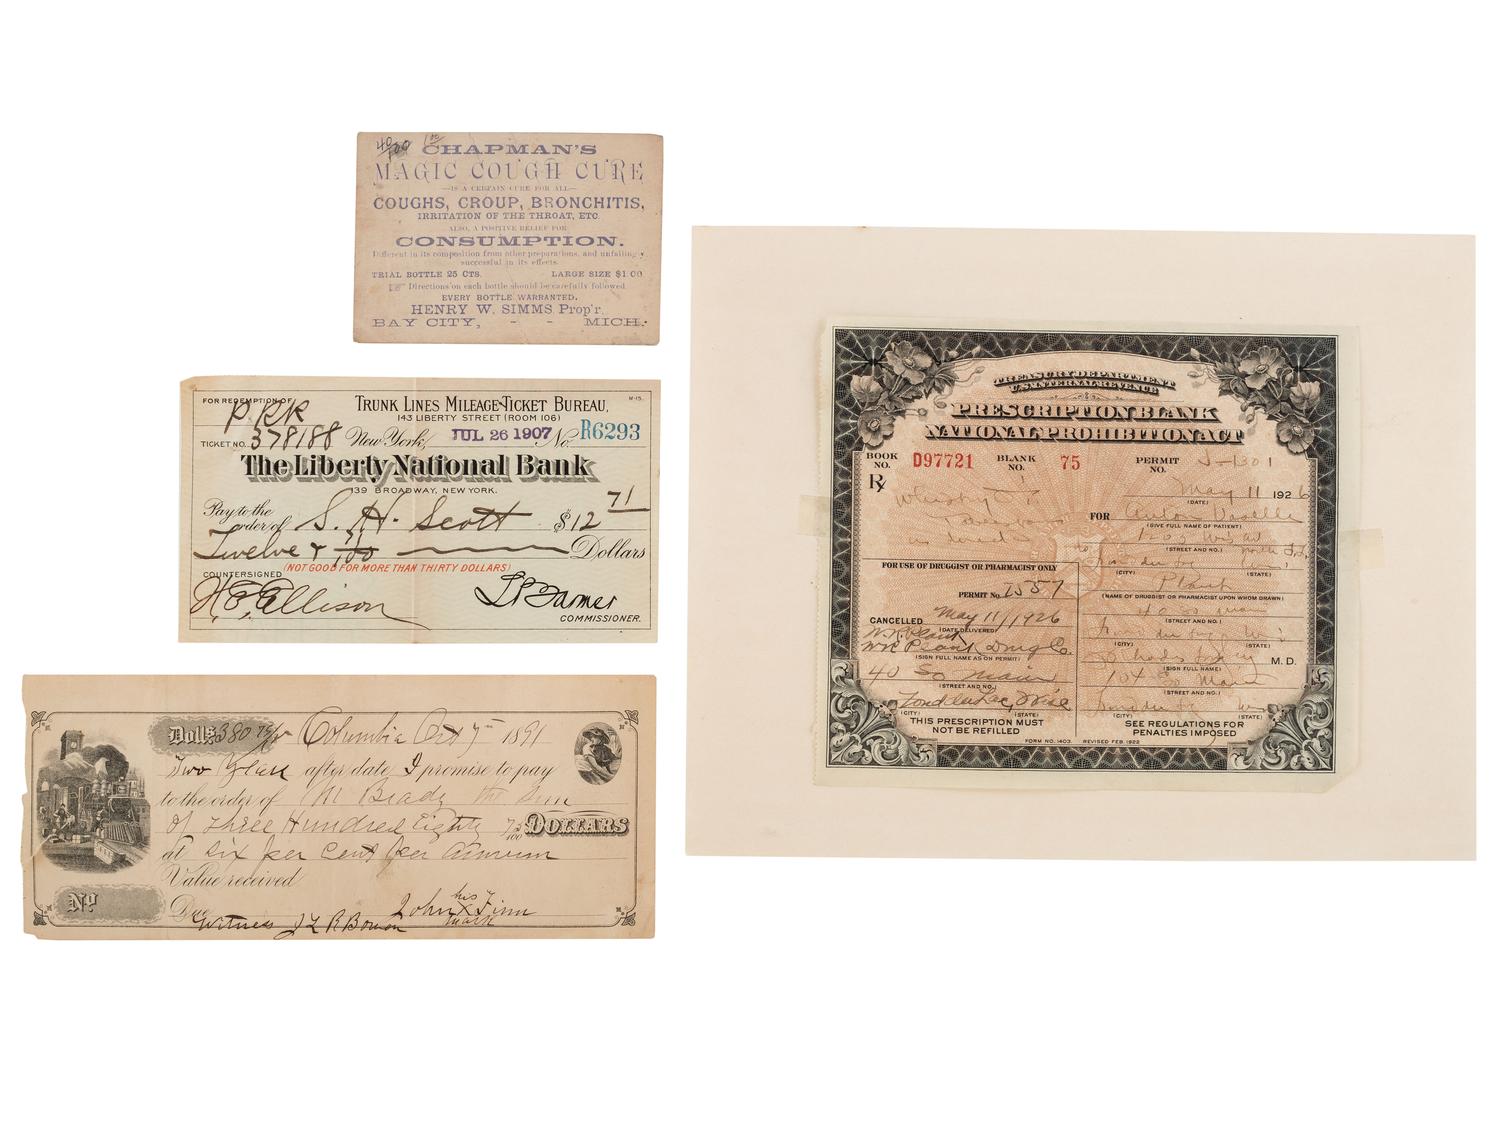 40/100 1 00
CHAPMAN'S
MAGIC COUGH CURE
—IS A CERTAIN CURE FOR ALL—
COUGHS, CROUP, BRONCHITIS,
IRRITATION OF THE THROAT, ETC.
ALSO, A POSITIVE RELIEF FOR
CONSUMPTION.
Different in its composition from other preparations, and unfailingly
successful in its effects.
TRIAL BOTTLE 25 CTS. LARGE SIZE $1.00
☞ Directions on each bottle should be carefully followed.
EVERY BOTTLE WARRANTED.
HENRY W. SIMMS, Prop'r,
BAY CITY, - - MICH.
FOR REDEMPTION OF TRUNK LINES MILEAGE TICKET BUREAU, M-15.
P.RR 143 LIBERTY STREET (ROOM 106)
TICKET NO. 378188 New York, JUL 26 1907 No. R6293
The Liberty National Bank
139 BROADWAY, NEW YORK.
Pay to the
order of S. H. Scott $12 71
Twelve & 71/100 Dollars
(NOT GOOD FOR MORE THAN THIRTY DOLLARS)
COUNTERSIGNED
H E Ellison
COMMISSIONER.
Dolls 380 75/100 Columbia Oct 7th 1891
Two Years after date I promise to pay
to the order of M Brady the Sum
Of Three Hundred Eighty 75/100 DOLLARS
at six per cent per Annum
Value received
No
Due John his X mark Finn
Witness J L R Bowen
TREASURY DEPARTMENT
U.S. INTERNAL REVENUE
PRESCRIPTION BLANK
NATIONAL PROHIBITION ACT
BOOK NO. D97721 BLANK NO. 75 PERMIT NO. J-1301
Rx
May 11 1926
(DATE)
FOR Anton
(GIVE FULL NAME OF PATIENT)
(STREET AND NO.)
(CITY) (STATE)
Plank
(NAME OF DRUGGIST OR PHARMACIST UPON WHOM DRAWN)
40 So Main
(STREET AND NO.)
(CITY) (STATE)
M.D.
(SIGN FULL NAME)
104 So Main
(STREET AND NO.)
(CITY) (STATE)
SEE REGULATIONS FOR
PENALTIES IMPOSED
Whiskey
as directed
FOR USE OF DRUGGIST OR PHARMACIST ONLY
PERMIT No. 7557
CANCELLED May 11/1926
(DATE DELIVERED)
Drug Co.
(SIGN FULL NAME AS ON PERMIT)
40 So Main
(STREET AND NO.)
Fond du Lac, Wisc
(CITY) (STATE)
THIS PRESCRIPTION MUST
NOT BE REFILLED
FORM NO. 1403 REVISED FEB. 1922